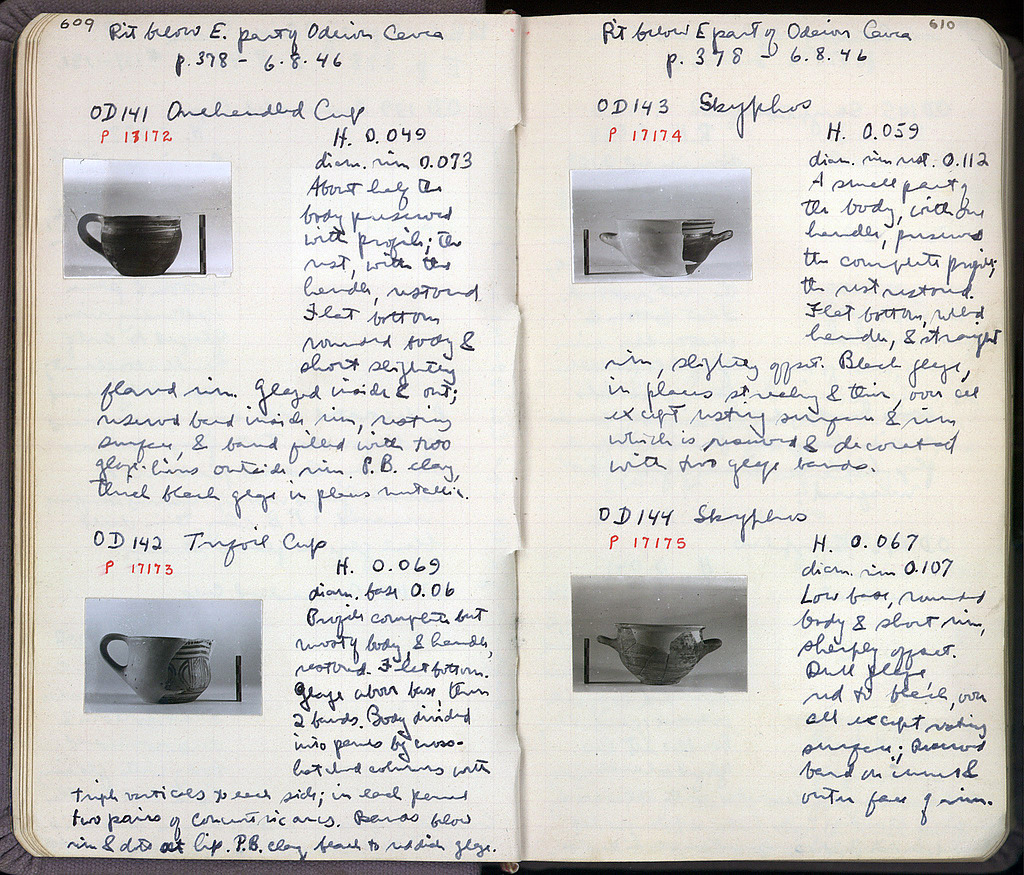 609
Pit below E. part of Odeion Cavea
p.378 - 6.8.46
OD141 Onehandled Cup
P 17172
H. 0.049
diam. rim 0.073
About half the
body preserved
with profile; the
rest, with the
handle, restored.
Flat bottom
rounded body &
short slightly
flared rim. Glazed inside & out;
reserved band inside rim, resting
surface, & band filled with two
glaze lines outside rim. P.B. clay,
thick black glaze in places metallic.
OD142 Trefoil Cup
P 17173
H. 0.069
diam. base 0.06
Profile complete but
mostly body & handle,
restored. Flat bottom.
Glaze above base, then
2 bands. Body divided
into panels by cross-
hatched columns with
triple verticals to each side; in each panel
two pairs of concentric arcs. Bands below
rim & dots at lip. P.B. clay black to reddish glaze.
610
Pit below E part of Odeion Cavea
p.378 - 6.8.46
OD143 Skyphos
P 17174
H. 0.059
diam. rim rest. 0.112
A small part of
the body, with one
handle, preserves
the complete profile;
the rest restored.
Flat bottom, rolled
handles, & straight
rim, slightly offset. Black glaze,
in places streaky & thin, over all
except resting surface & rim
which is reserved & decorated
with two glaze bands.
OD144 Skyphos
P 17175
H. 0.067
diam. rim 0.107
Low base, rounded
body & short rim,
sharply offset.
Dull glaze,
red to black, over
all except resting
surface; reserved
band on inner &
outer face of rim.